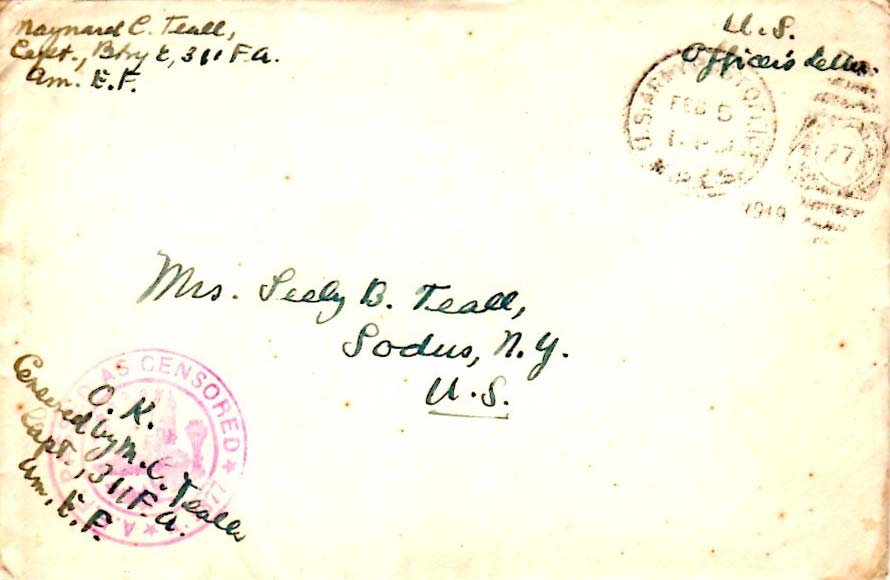 Maynard C. Teall,
Capt., Btry E, 311 F.A.
Am. E.F.
U.S.
Officer's Letter.
U.S. ARMY POST OFFICE
FEB 5
1919
77
Mrs. Seely B. Teall,
Sodus, N.Y.
U.S.
A.E.F. PASSED AS CENSORED
O.K.
Censored by M.C. Teall
Capt., 311 F.A.
Am. E.F.